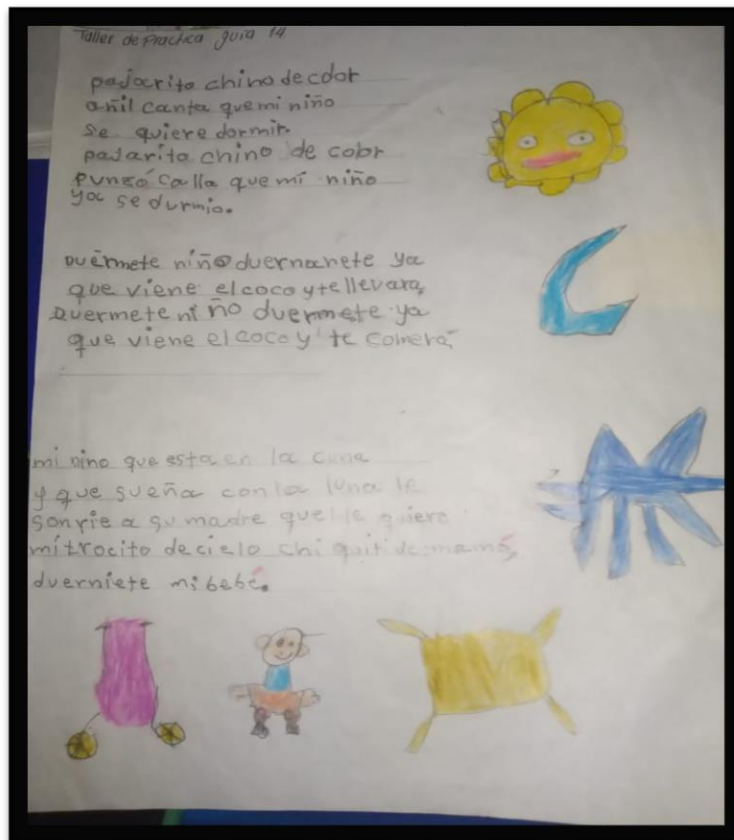 Taller de Practica guia 14
pajarito chino de color
añil canta que mi niño
se quiere dormir.
pajarito chino de color
punzó calla que mi niño
ya se durmio.
Duérmete niño duernanete ya
que viene el coco y te llevara,
Duermete niño duermete ya
que viene el coco y te comera,
mi nino que esta en la cuna
y que sueña con la luna le
sonrie a su madre que le quiere
mi trocito de cielo chi quiti de mamá,
duerniete mi bebé.